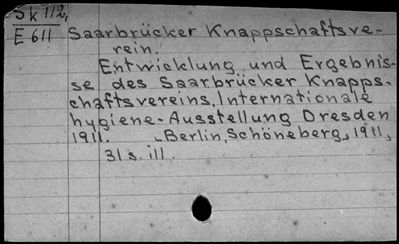 Sk 112,
E 611
Saarbrücker Knappschaftsve-
rein.
Entwicklung und Ergebnis-
se des Saarbrücker Knapps-
chaftsvereins, Internationale
hygiene-Ausstellung Dresden
1911. Berlin, Schöneberg, 1911,
31 s. ill.